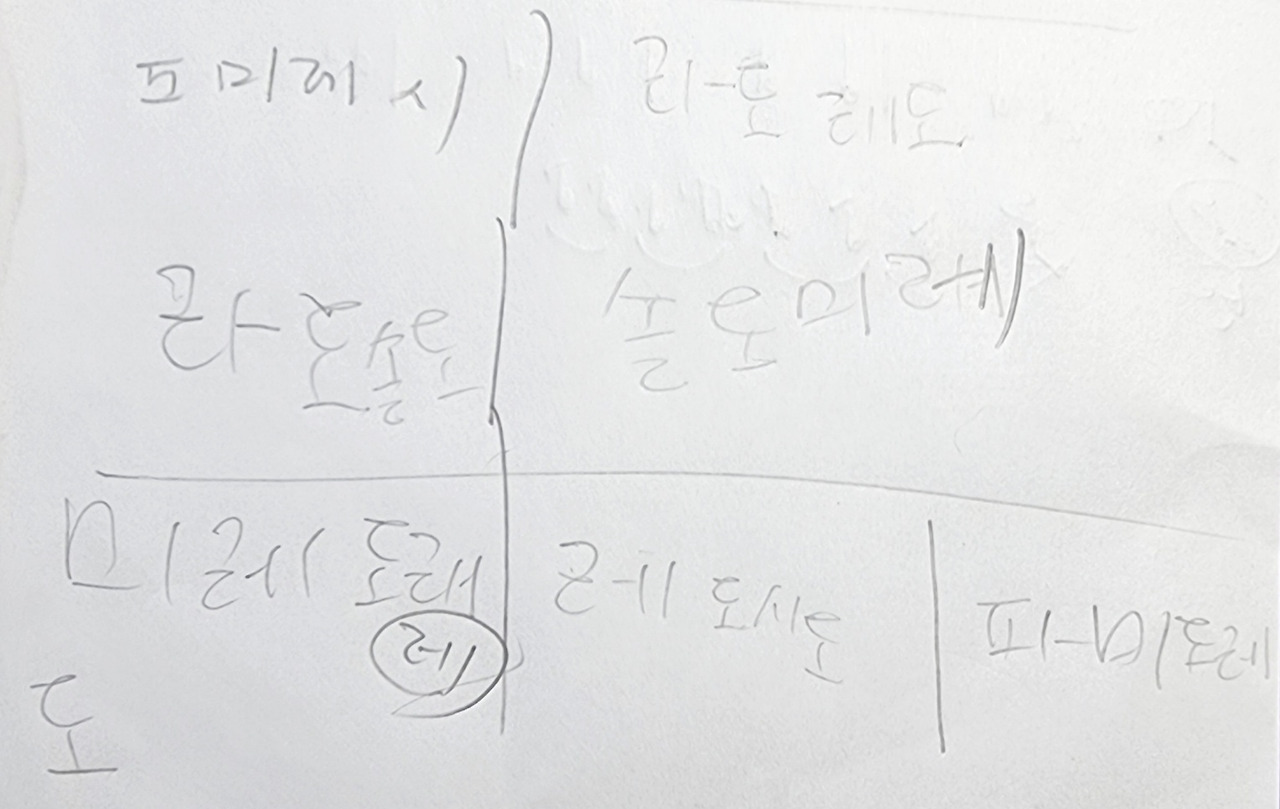 도미레시 라도레도
라도솔도 솔도미레
미레도래 레도시도 파미도레
레
도